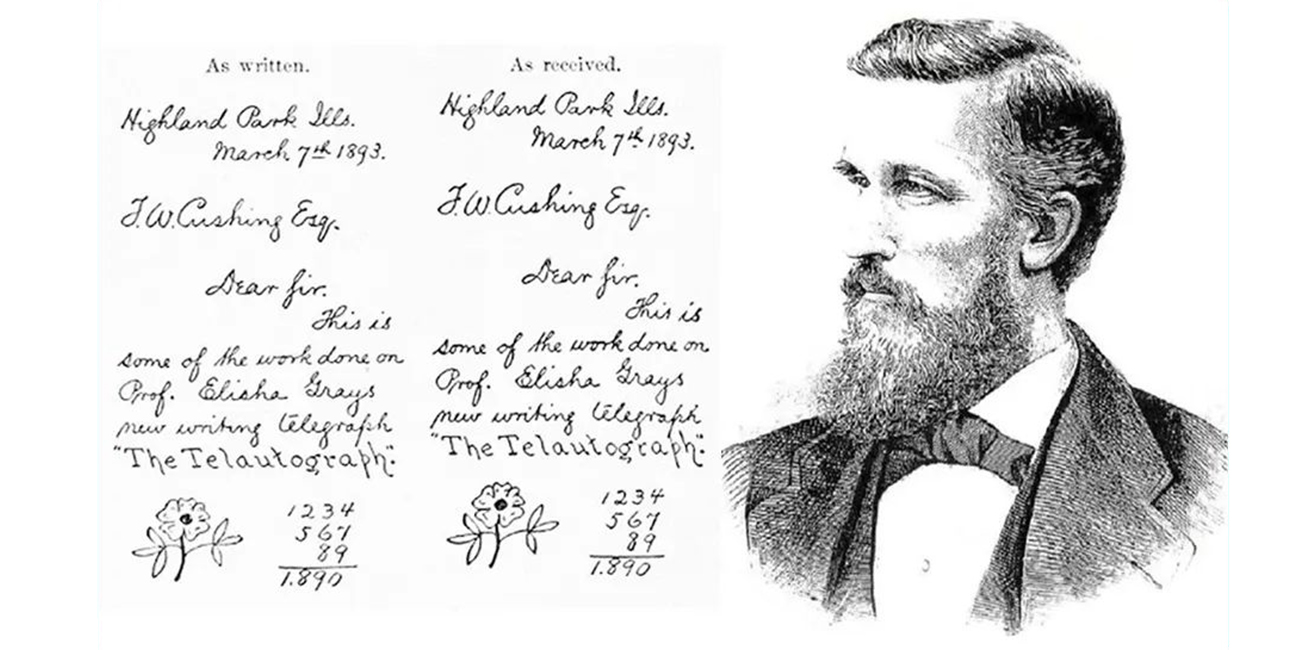 As written.
Highland Park Ills.
March 7th 1893.
F.W. Cushing Esq.
Dear Sir.
This is
some of the work done on
Prof. Elisha Grays
new writing telegraph
"The Telautograph".
1234
567
89
1.890
As received.
Highland Park Ills.
March 7th 1893.
F.W. Cushing Esq.
Dear Sir.
This is
some of the work done on
Prof. Elisha Grays
new writing telegraph
"The Telautograph".
1234
567
89
1.890